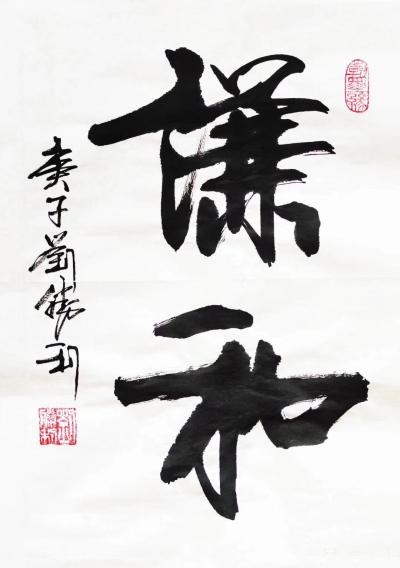 謙和
庚子劉勝利